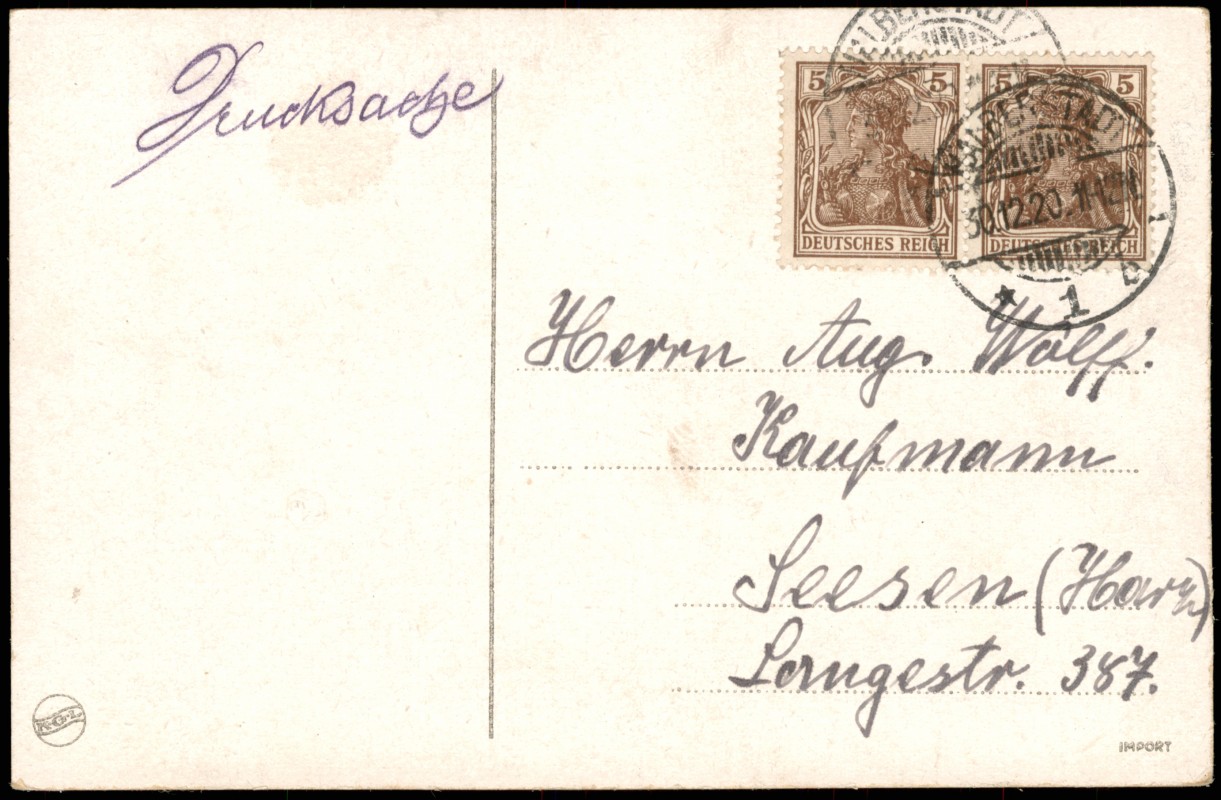 Drucksache
HALBERSTADT
5 5 5 5
DEUTSCHES REICH DEUTSCHES REICH
HALBERSTADT
30.12.20. 11-12V.
* 1 b
Herrn Aug. Wolff.
Kaufmann
Seesen (Harz)
Langestr. 387.
K.G.L.
IMPORT